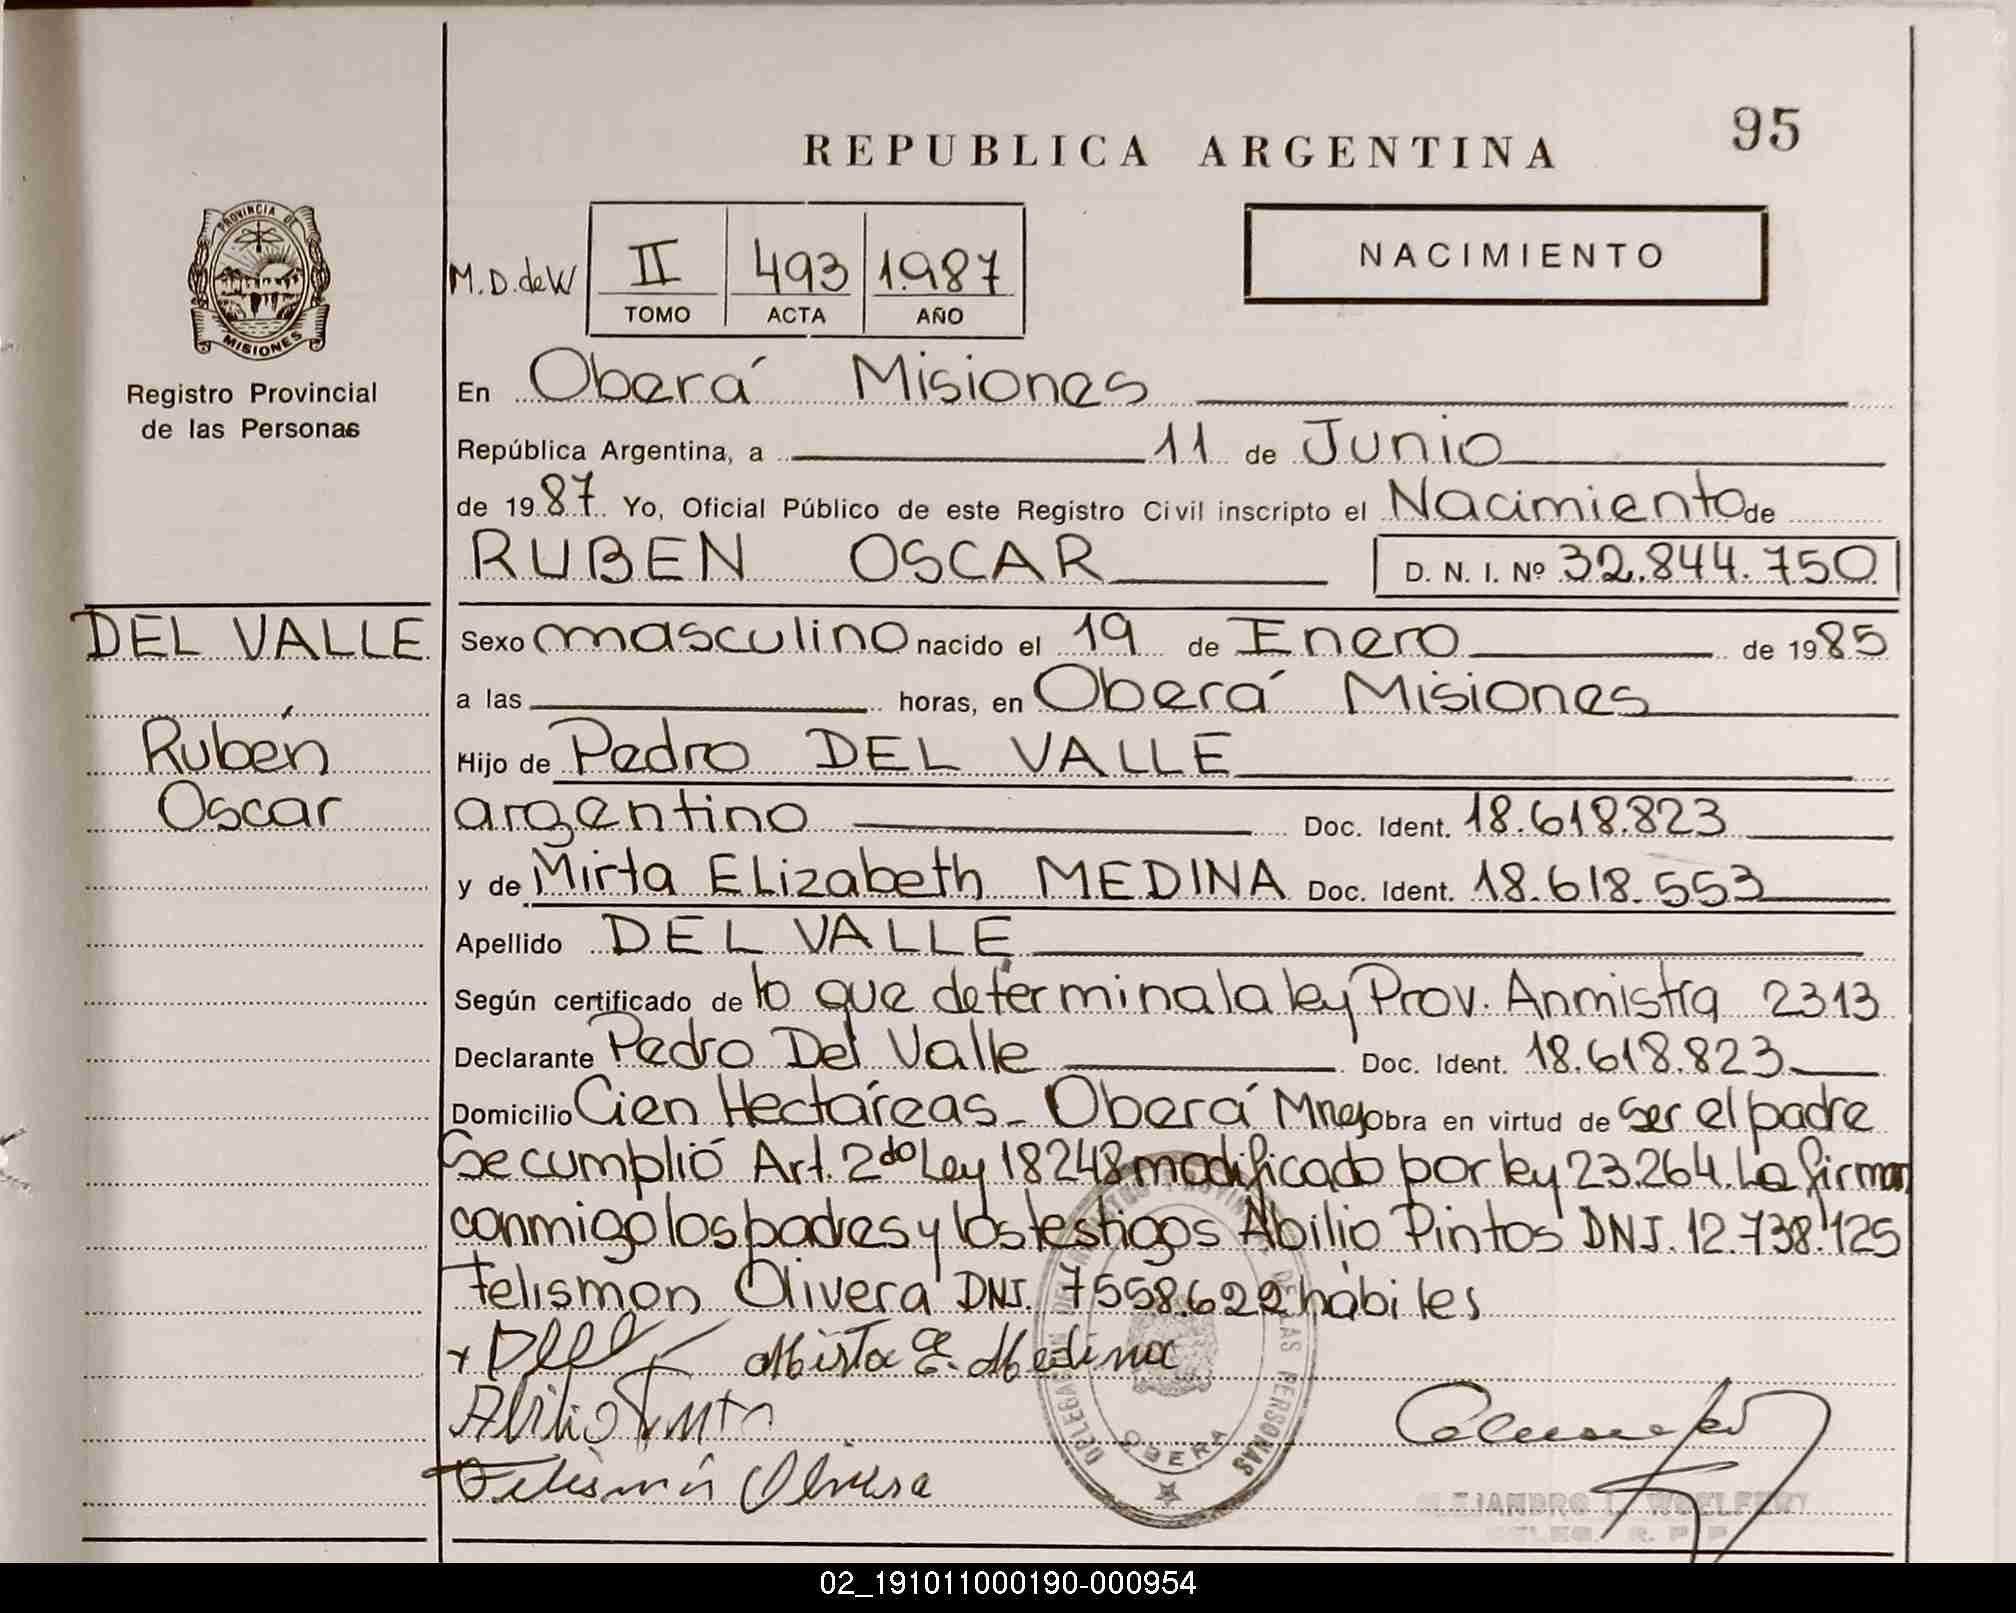 95
REPUBLICA ARGENTINA
PROVINCIA DE
MISIONES
Registro Provincial
de las Personas
M.D. de W II 493 1.987
TOMO ACTA AÑO
NACIMIENTO
En Oberá Misiones
República Argentina, a 11 de Junio
de 1987. Yo, Oficial Público de este Registro Civil inscripto el Nacimiento de
RUBEN OSCAR D. N. I. Nº 32.844.750
DEL VALLE
Rubén
Oscar
Sexo masculino nacido el 19 de Enero de 1985
a las horas, en Oberá Misiones
Hijo de Pedro DEL VALLE
argentino Doc. Ident. 18.618.823
y de Mirta ELizabeth MEDINA Doc. Ident. 18.618.553
Apellido DEL VALLE
Según certificado de lo que determina la ley Prov. Anmistia 2313
Declarante Pedro Del Valle Doc. Ident. 18.618.823
Domicilio Cien Hectáreas - Oberá Mnes obra en virtud de ser el padre
Se cumplió Art. 2do Ley 18248 modificado por ley 23.264. La firman
conmigo los padres y los testigos Abilio Pintos DNI. 12.738.125
Felismon Olivera DNI. 7558.622 hábiles
Mirta E. Medina
Abilio Pinto
Felismón Olivera
DELEGACION DEL REGISTRO PROVINCIAL DE LAS PERSONAS
OBERA
02_191011000190-000954